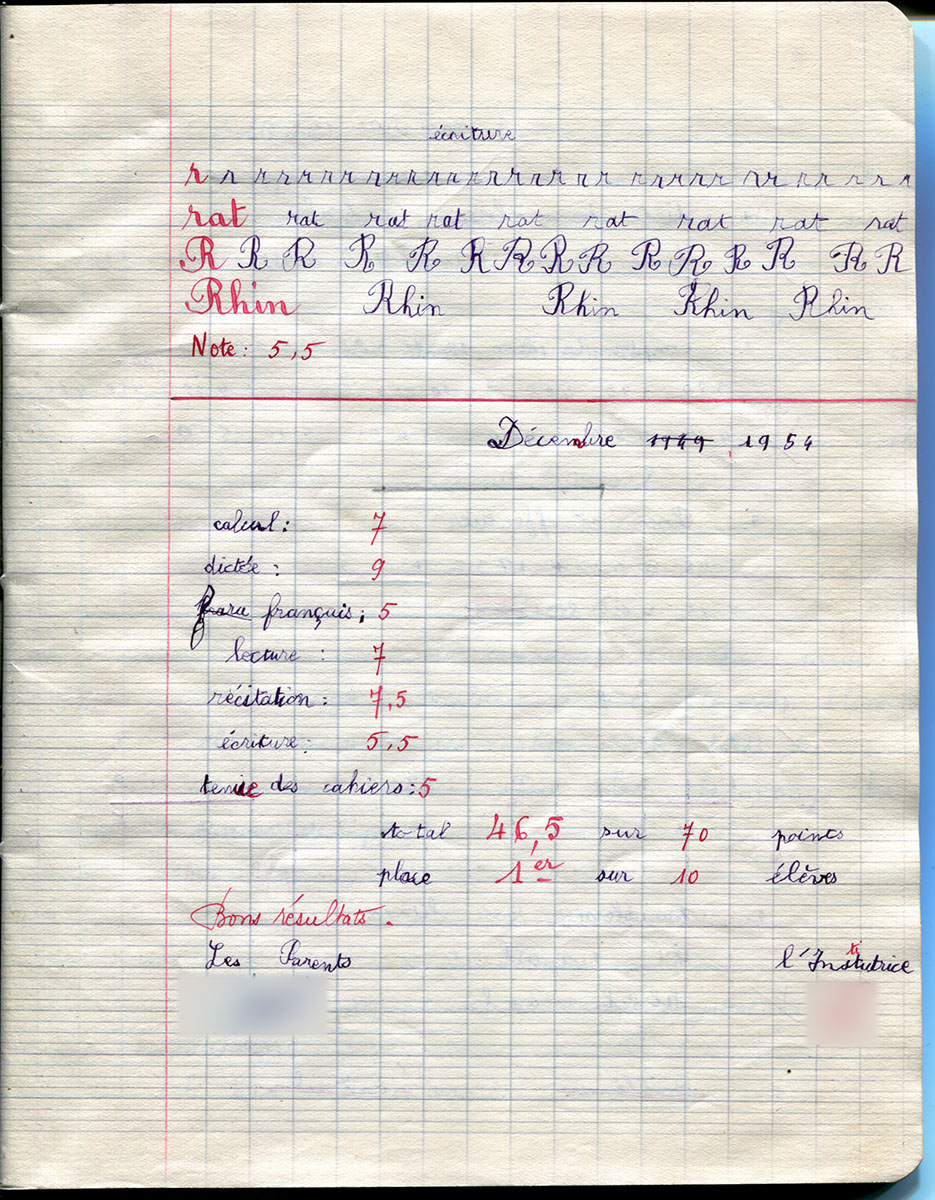 écriture
r r r r r r r r r r r r r r r r r r r r r r r r r r r r r r
rat rat rat rat rat rat rat rat rat
R R R R R R R R R R R R R R R
Rhin Rhin Rhin Rhin Rhin
Note : 5,5
Décembre 1949 1954
calcul : 7
dictée : 9
français ; 5
lecture : 7
récitation : 7,5
écriture : 5,5
tenue des cahiers : 5
total 46,5 sur 70 points
place 1er sur 10 élèves
Bons résultats.
Les Parents l'Institutrice